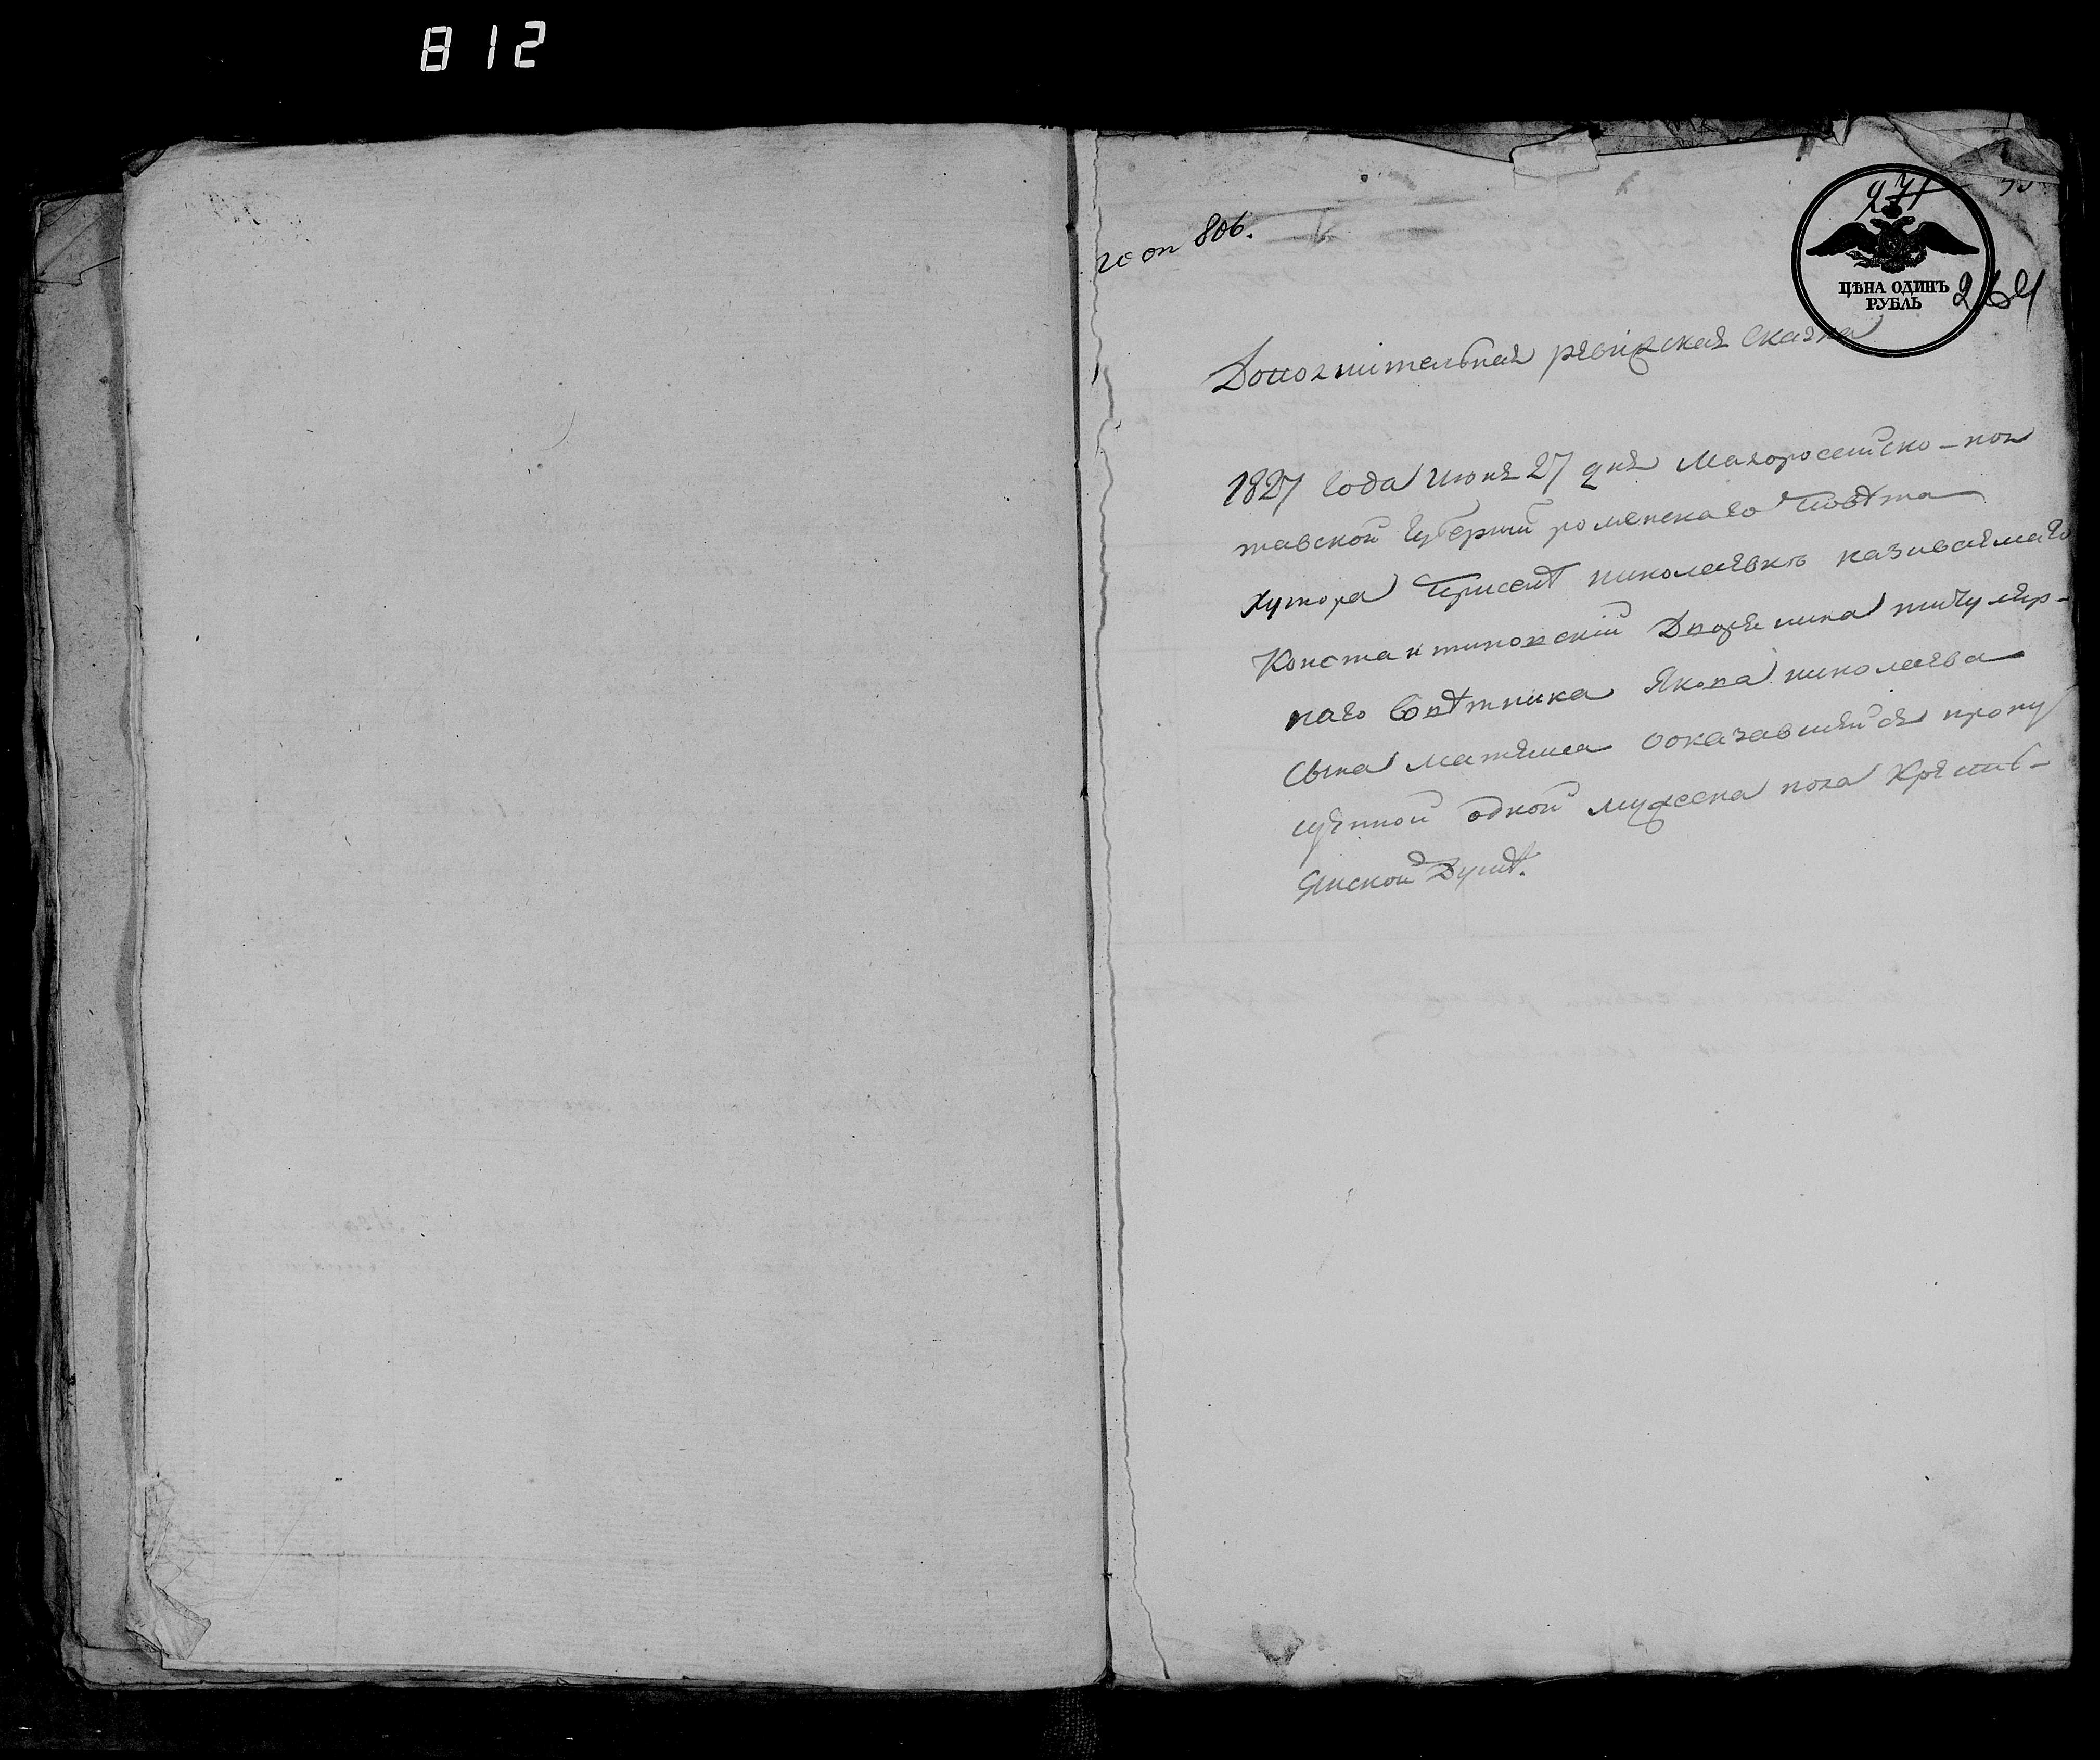 812
271
806.
ЦѢНА ОДИНЪ
РУБЛЬ
264
Дополнительная ревизская сказка
1827 года июня 27 дня Малоросеийско-пол
тавской губернии роменскаго повѣта
хутора при селѣ николаевкѣ называемаго
Константиновский Дворянина титуляр-
наго совѣтника Якова николаева
сына матяша оказавшейся пропу
щенной одной мужеска пола Крестъ-
янской Душѣ.